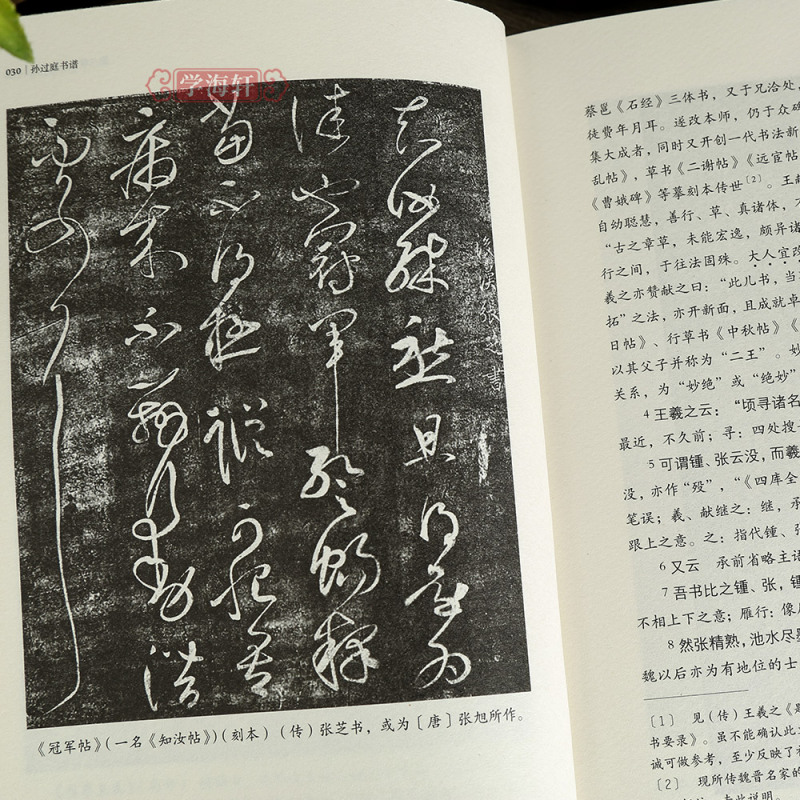 030 孙过庭书谱
学海轩
漢張芝書
知汝殊愁且得還為
佳也冠軍暫暢釋
當不得極蹤可恨吾
病來不辦行動潛
不可耳
《冠军帖》(一名《知汝帖》)(刻本)(传)张芝书，或为〔唐〕张旭所作。
蔡邕《石经》三体书，又于兄洽处，
徒费年月耳。遂改本师，仍于众碑
集大成者，同时又开创一代书法新
乱帖》，草书《二谢帖》《远宦帖
《曹娥碑》等摹刻本传世〔2〕。王献
自幼聪慧，善行、草、真诸体，
“古之章草，未能宏逸，颇异诸
行之间，于往法固殊。大人宜改
羲之亦赞献之曰：“此儿书，当
拓”之法，亦开新面，且成就卓
日帖》、行草书《中秋帖》《
以其父子并称为“二王”。妙
关系，为“妙绝”或“绝妙”
4 王羲之云：“顷寻诸名
最近，不久前；寻：四处搜
5 可谓锺、张云没，而羲
没，亦作“殁”，“《四库全
笔误；羲、献继之：继，承
跟上之意。之：指代锺、张
6 又云 承前省略主语
7 吾书比之锺、张，锺
不相上下之意；雁行：像雁
8 然张精熟，池水尽墨
魏以后亦为有地位的士
〔1〕 见(传)王羲之《题
书要录》。虽不能确认此
诚可做参考，至少反映了
〔2〕 现所传魏晋名家的
此说明。